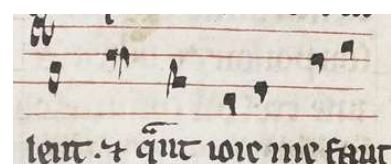 lent. ⁊ q̃nt ioie me faut